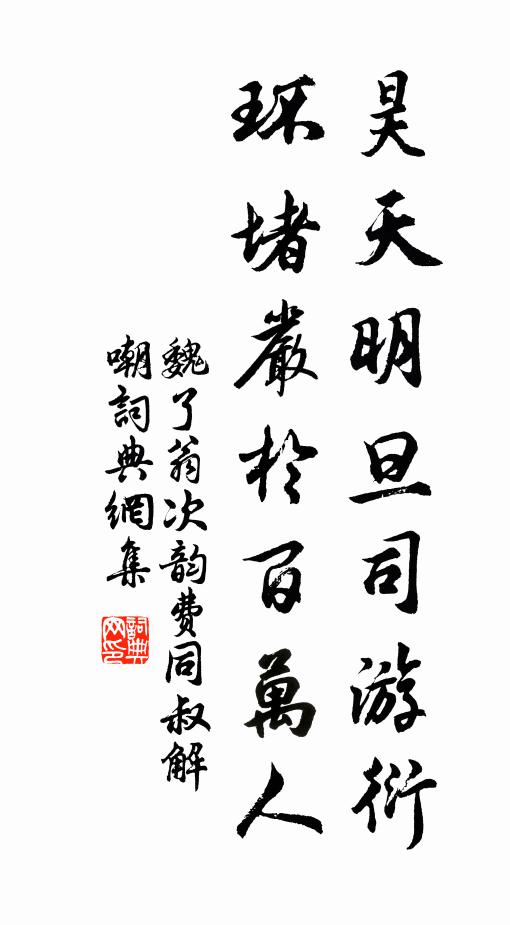 昊天明旦司游衍
环堵嚴於百萬人
魏了翁次韵費同叔解
嘲詞典網集
詞典网印